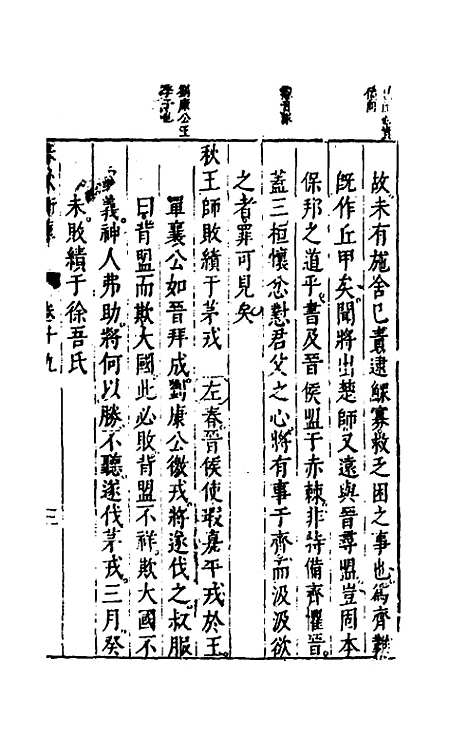 故未有施舍已責逮鰥寡救乏困之事也爲齊難
既作丘甲矣聞將出楚師又遠與晉尋盟豈固本
保邦之道乎書及晉侯盟于赤棘非特備齊懼晉
蓋三桓懷忿懟君父之心將有事于齊而汲汲欲
之者罪可見矣
秋王師敗績于茅戎 左春晉侯使瑕嘉平戎於王
單襄公如晉拜成劉康公徼戎將遂伐之叔服
曰背盟而欺大國此必敗背盟不祥欺大國不
義神人弗助將何以勝不聽遂伐茅戎三月癸
未敗績于徐吾氏
劉康公王
季子也
卷十九
三